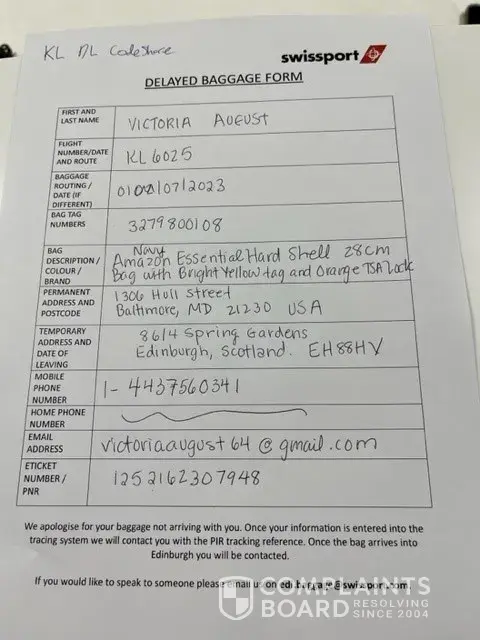 KL DL Codeshare
swissport
DELAYED BAGGAGE FORM
FIRST AND LAST NAME VICTORIA AUGUST
FLIGHT NUMBER/DATE AND ROUTE KL 6025
BAGGAGE ROUTING / DATE (IF DIFFERENT) 01/07/2023
BAG TAG NUMBERS 3279800108
BAG DESCRIPTION / COLOUR / BRAND Navy
Amazon Essential Hard Shell 28cm
Bag with Bright Yellow tag and Orange TSA Lock
PERMANENT ADDRESS AND POSTCODE 1306 Hull Street
Baltimore, MD 21230 USA
TEMPORARY ADDRESS AND DATE OF LEAVING 8614 Spring Gardens
Edinburgh, Scotland. EH88HV
MOBILE PHONE NUMBER 1-4437560341
HOME PHONE NUMBER
EMAIL ADDRESS victoriaaugust64@gmail.com
ETICKET NUMBER / PNR 1252162307948
We apologise for your baggage not arriving with you. Once your information is entered into the
tracing system we will contact you with the PIR tracking reference. Once the bag arrives into
Edinburgh you will be contacted.
If you would like to speak to someone please email us on edi.baggage@swissport.com
COMPLAINTS
BOARD RESOLVING SINCE 2004